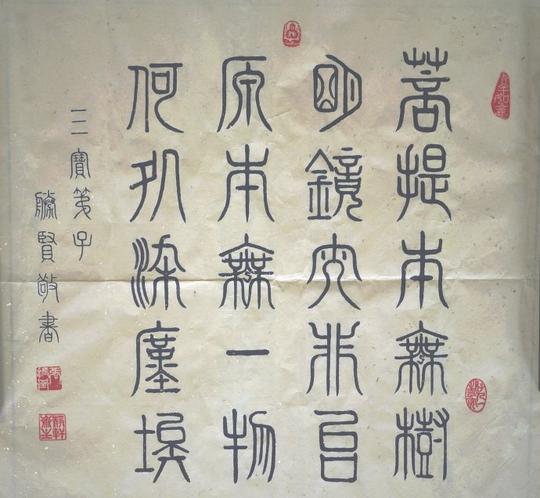 菩提本無樹
明鏡亦非台
原本無一物
何処染塵埃
三寶弟子
勝賢敬書